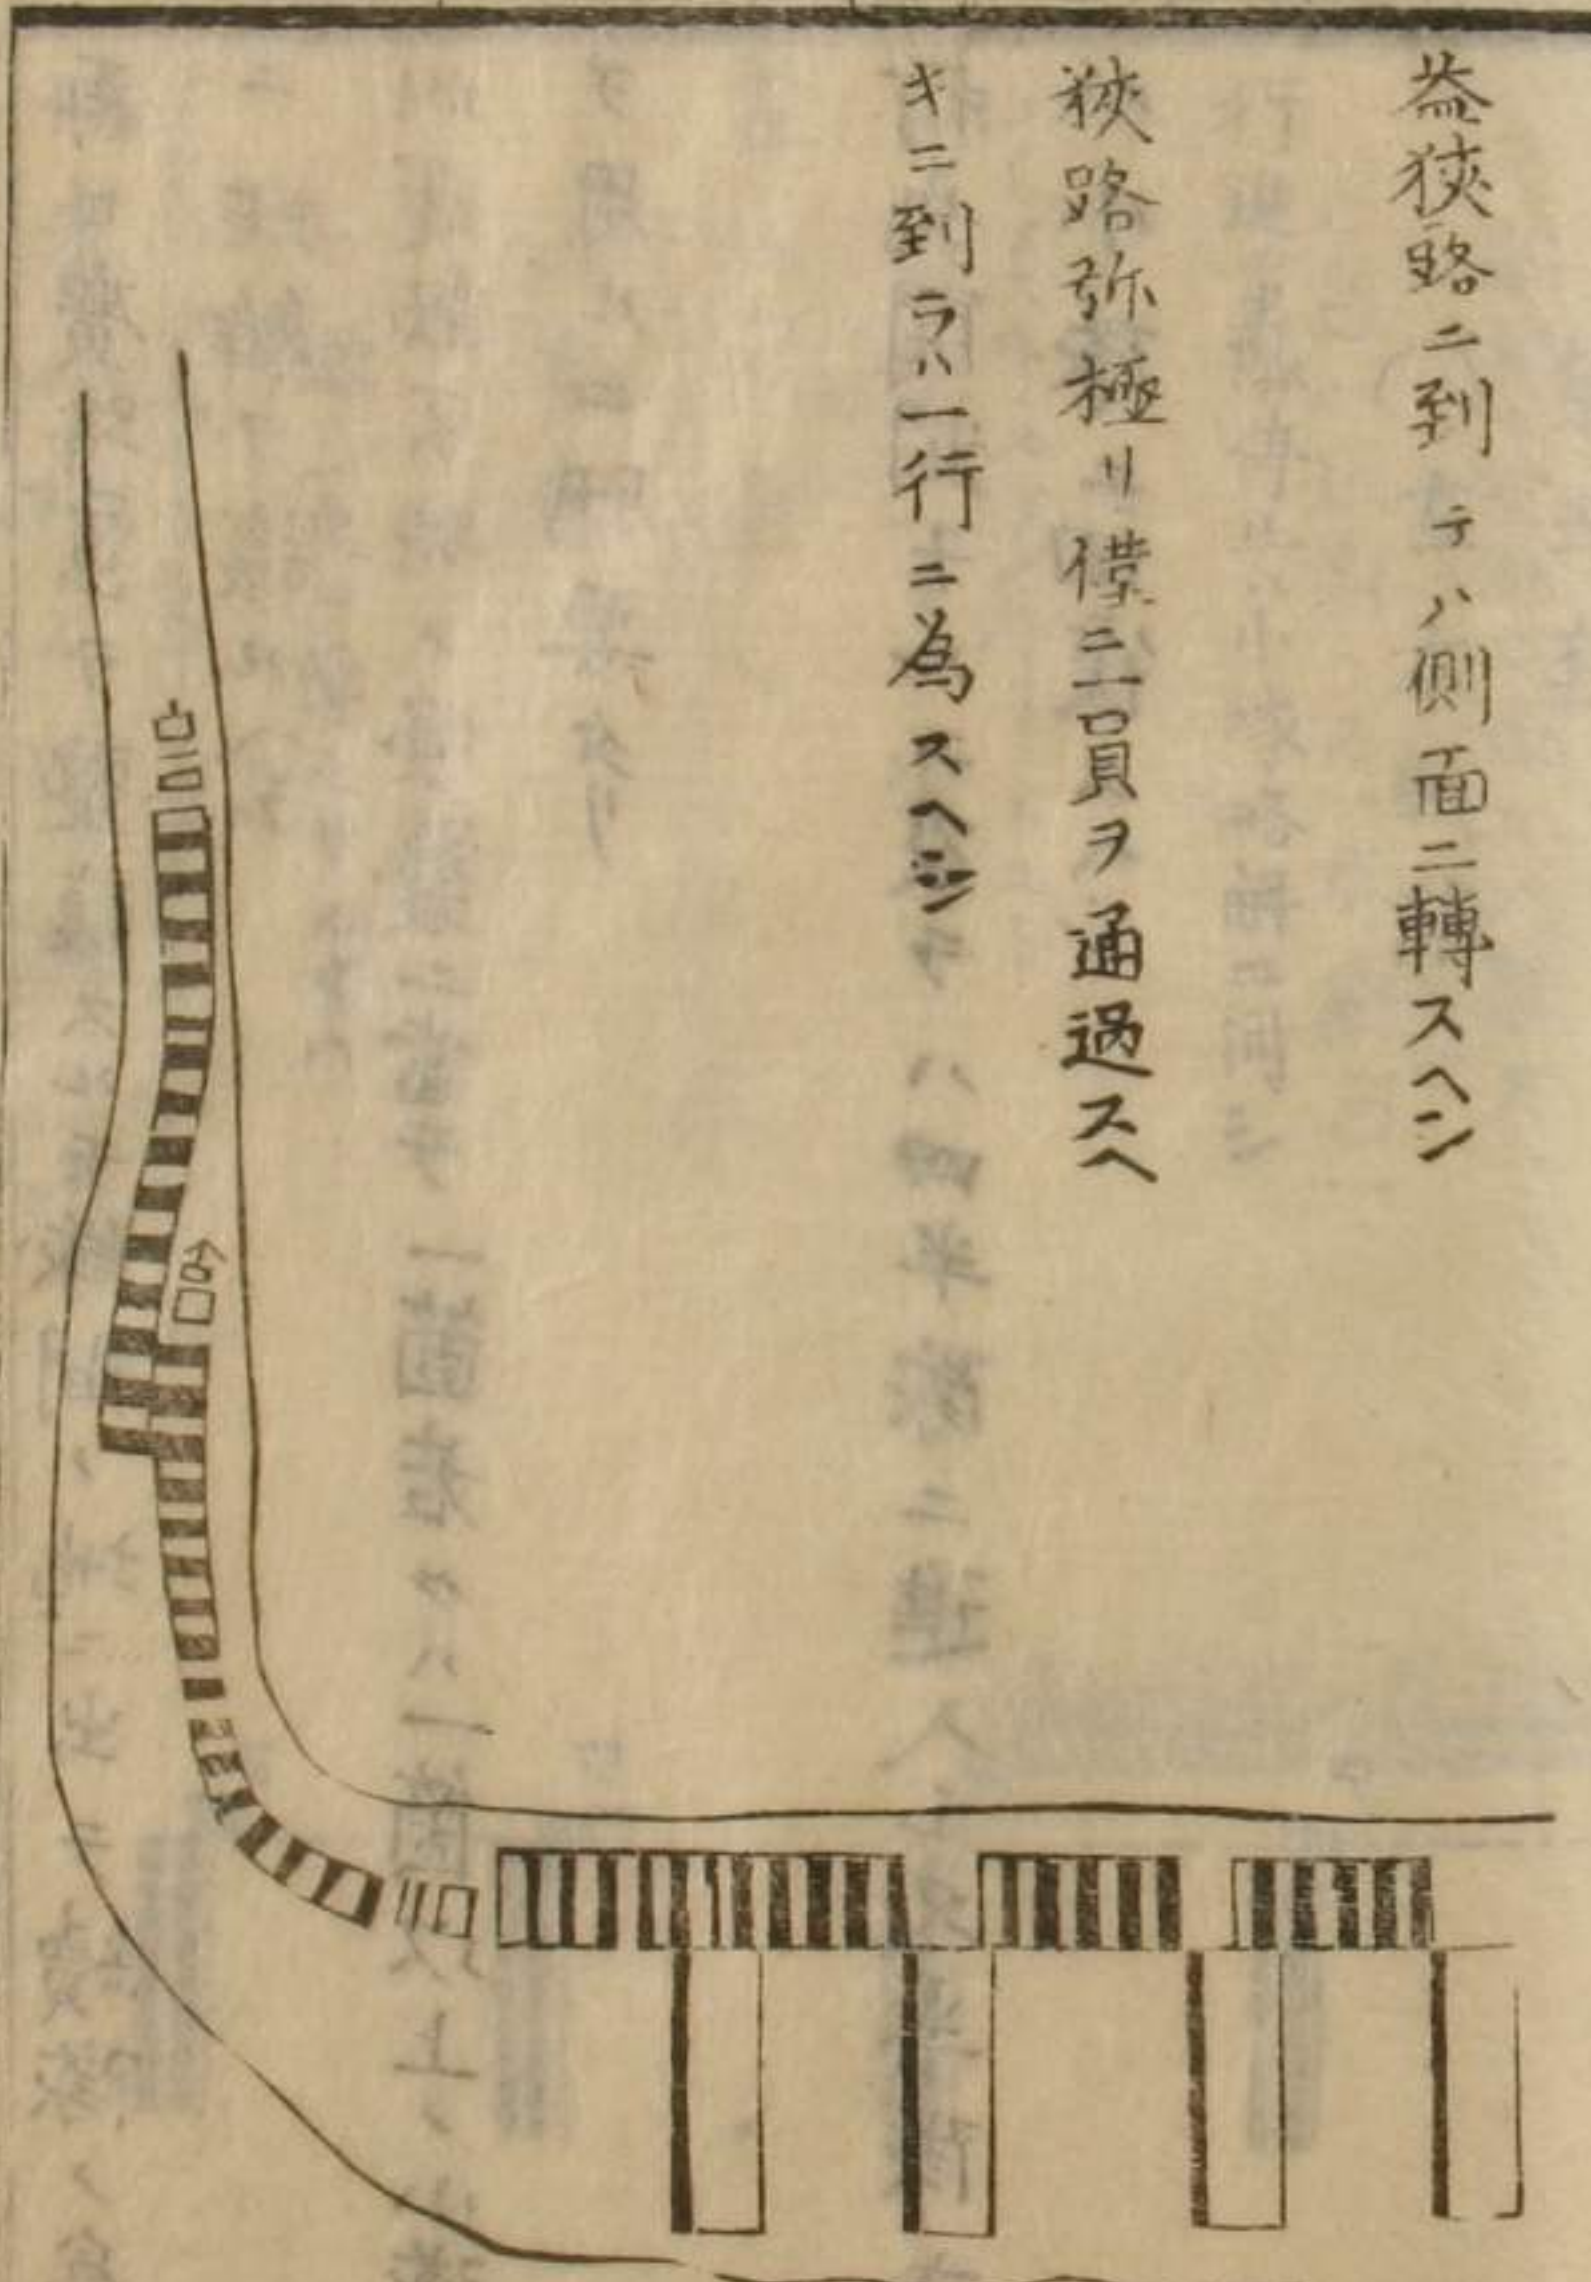 益狹路ニ到テハ側面ニ轉スヘシ
狹路弥極リ僅ニ二員ヲ通過スヘ
キニ到ラハ一行ニ為スヘシ